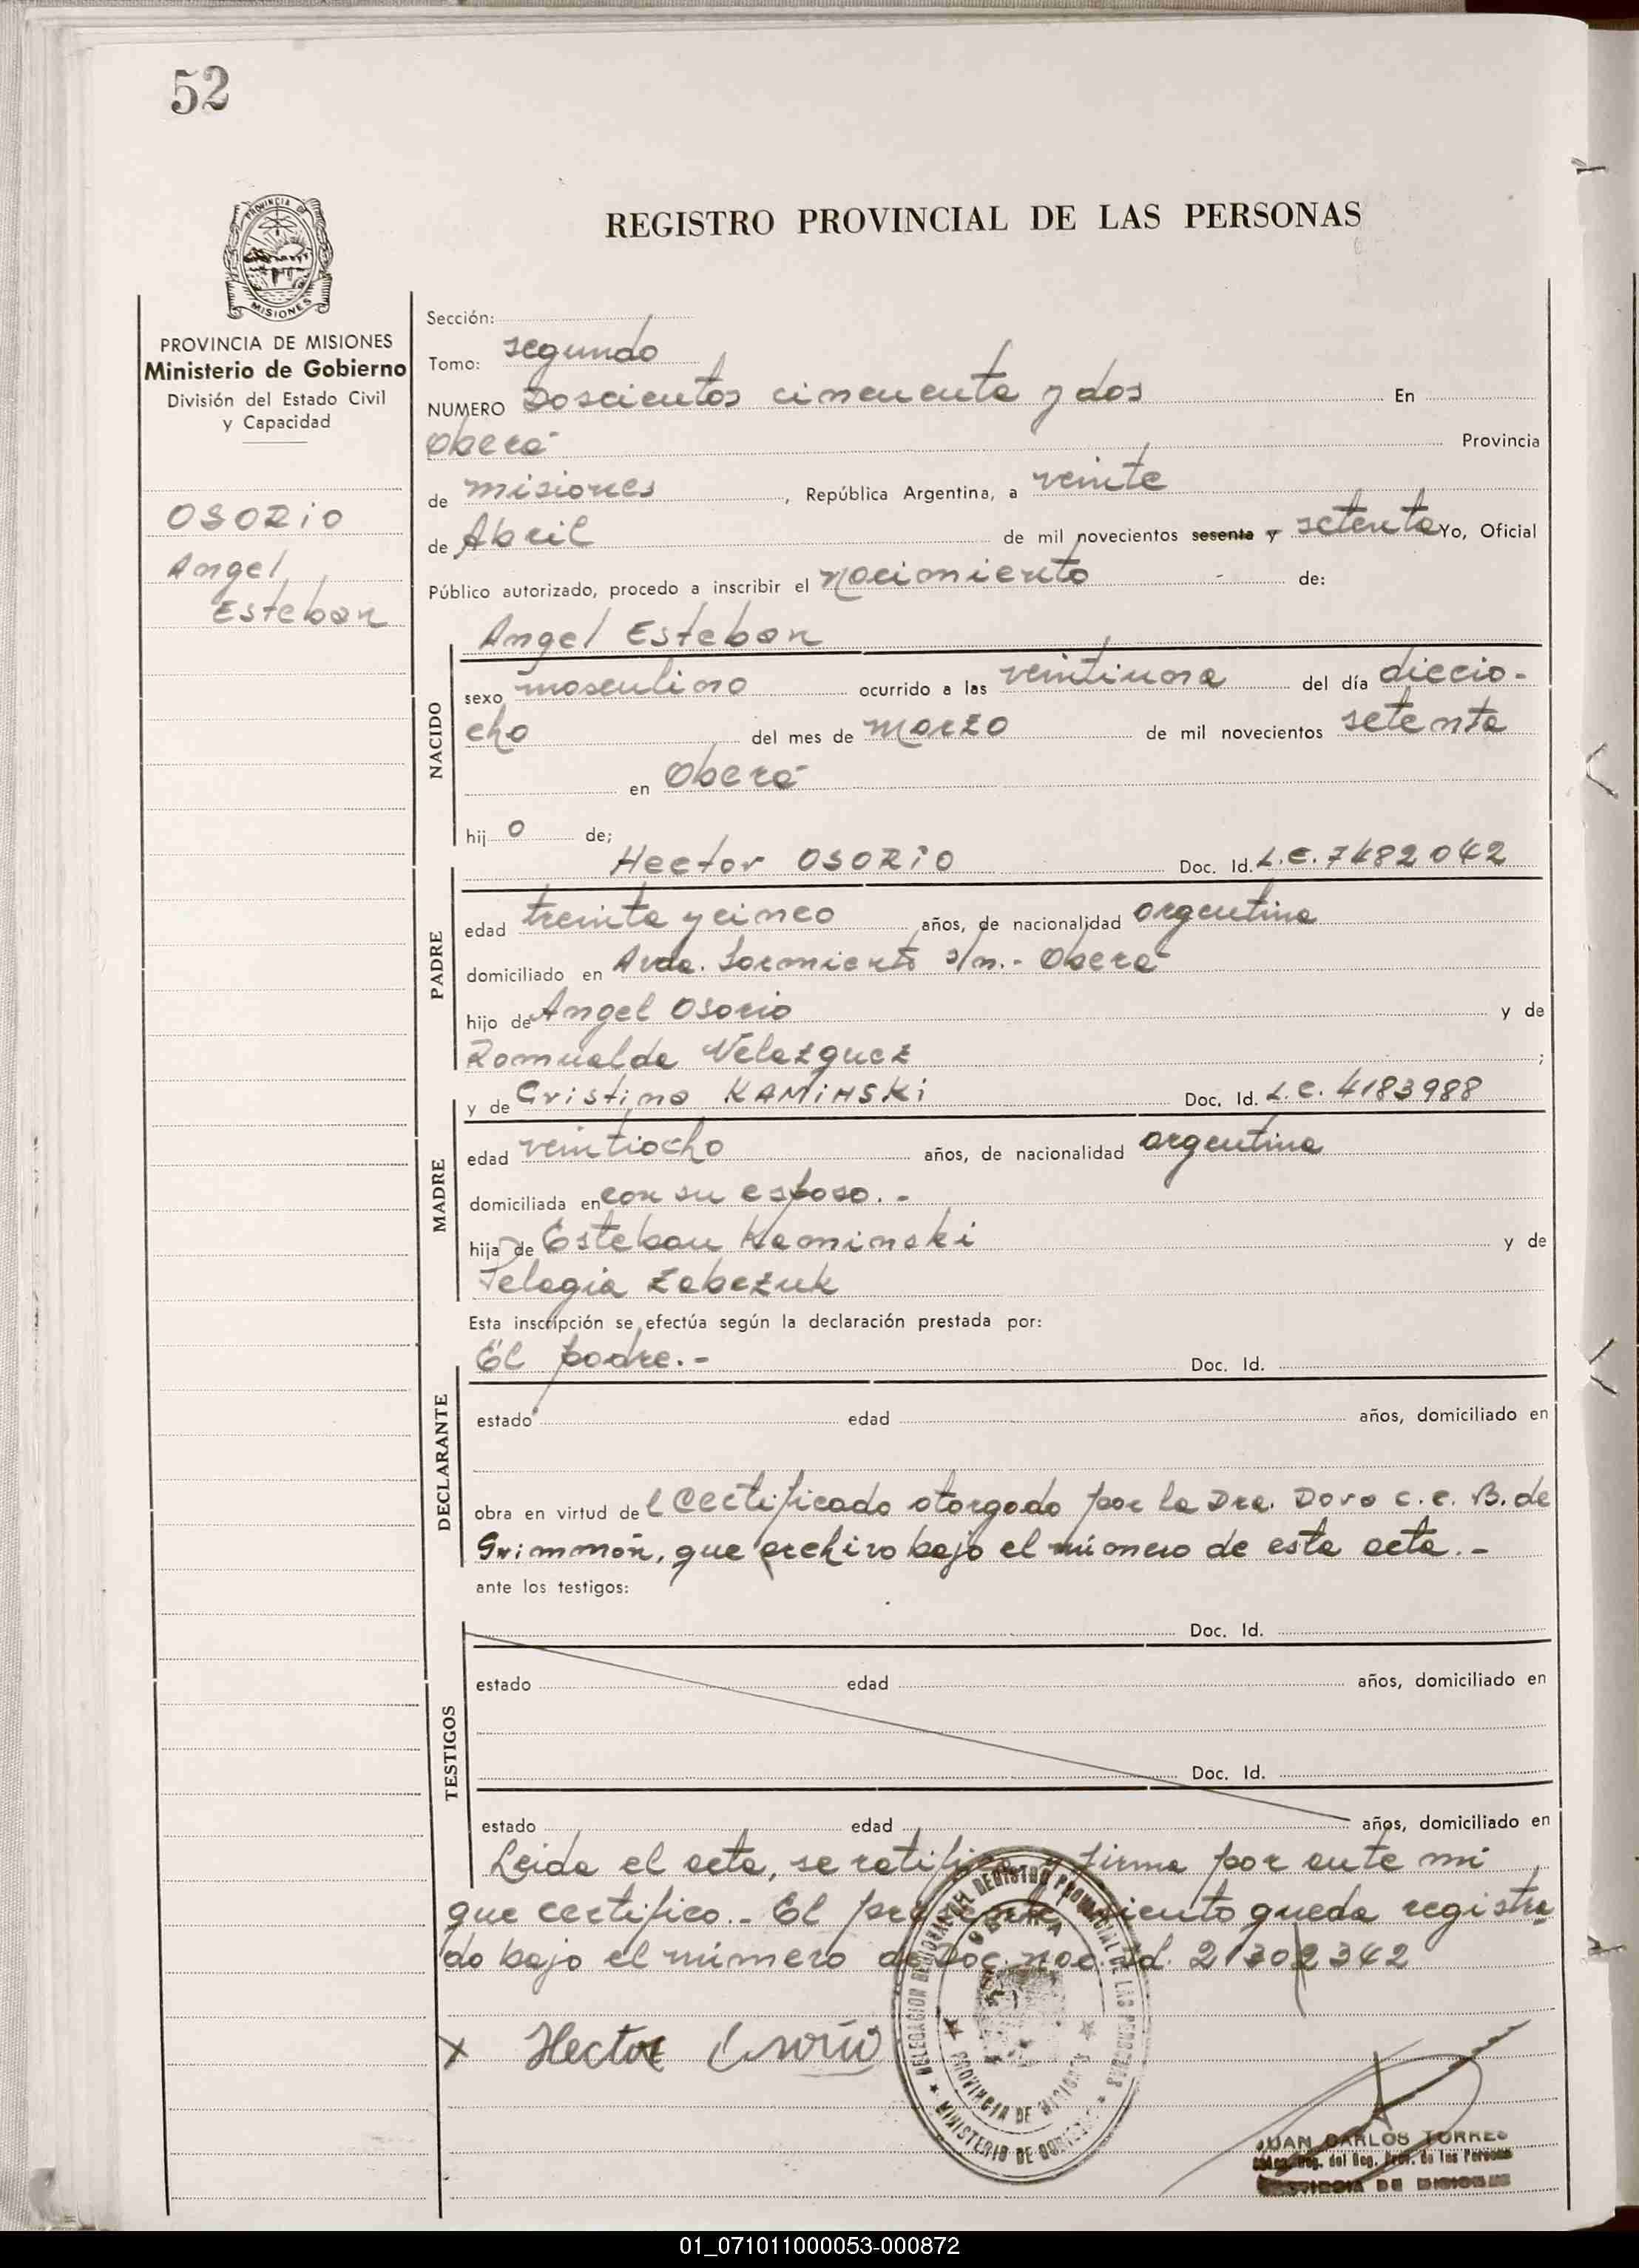 52
PROVINCIA DE MISIONES
PROVINCIA DE MISIONES
Ministerio de Gobierno
División del Estado Civil
y Capacidad
OSORIO
Angel
Esteban
REGISTRO PROVINCIAL DE LAS PERSONAS
Sección:
Tomo: segundo
NUMERO Doscientos cincuenta y dos En
Oberá Provincia
de misiones, República Argentina, a veinte
de Abril de mil novecientos sesenta y setenta Yo, Oficial
Público autorizado, procedo a inscribir el nacimiento - de:
Angel Esteban
NACIDO
sexo masculino ocurrido a las veintiuna del día diecio-
cho del mes de marzo de mil novecientos setenta
en Oberá
hijo de;
Hector OSORIO Doc. Id. L.E. 7482042
PADRE
edad treinta y cinco años, de nacionalidad argentina
domiciliado en Avda. Sarmiento s/n.- Oberá
hijo de Angel Osorio y de
Romualda Velazquez ;
y de Cristina KAMINSKI Doc. Id. L.C. 4183988
MADRE
edad veintiocho años, de nacionalidad argentina
domiciliada en con su esposo.-
hija de Esteban Kaminski y de
Pelagia Zabezuk
Esta inscripción se efectúa según la declaración prestada por:
El padre.- Doc. Id.
DECLARANTE
estado edad años, domiciliado en
obra en virtud del certificado otorgado por la Dra. Dora C.E. B. de
Grimmón, que archivo bajo el número de esta acta.-
ante los testigos:
Doc. Id.
TESTIGOS
estado edad años, domiciliado en
Doc. Id.
estado edad años, domiciliado en
Leida el acta, se ratifica y firma por ante mi
que certifico.- El nacimiento queda registra
do bajo el número de Doc. nac. Id. 21302342
x Hector Osorio
DELEGACION DEL REGISTRO PROVINCIAL DE LAS PERSONAS
OBERA
PROVINCIA DE MISIONES
MINISTERIO DE GOBIERNO
JUAN CARLOS TORRES
del Reg. Prov. de las Personas
PROVINCIA DE MISIONES
01_071011000053-000872